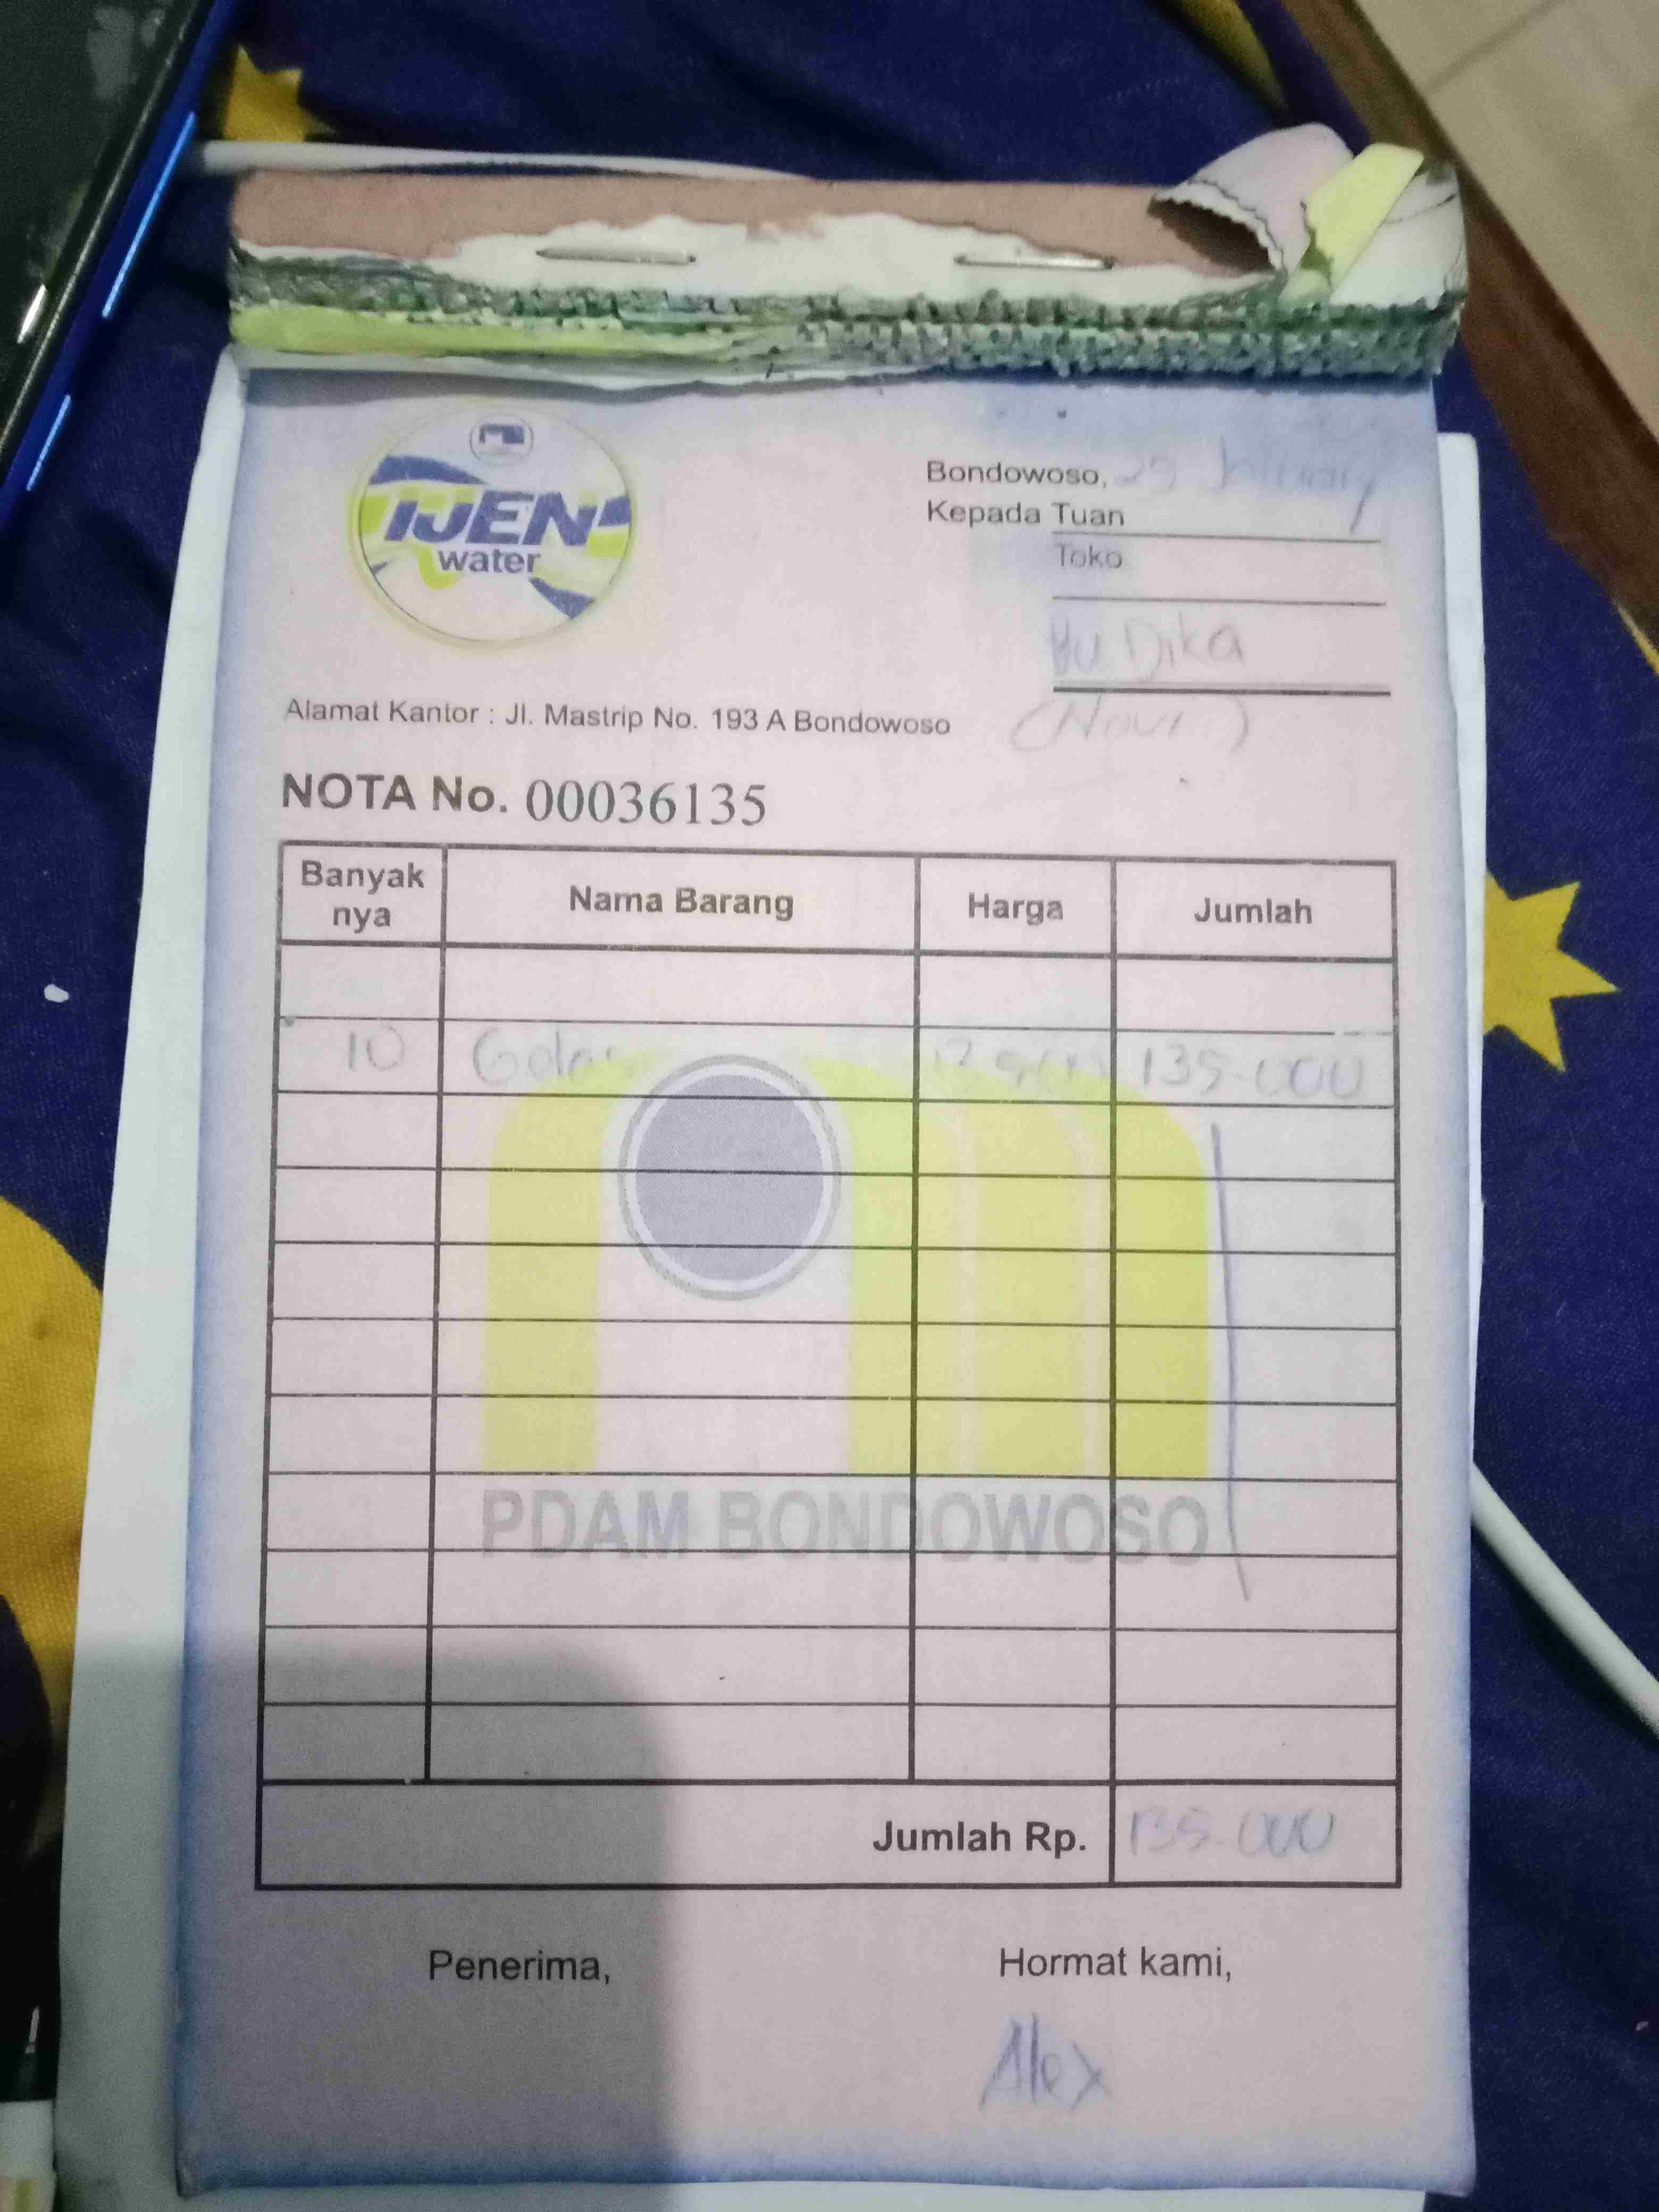 IJEN
water
Bondowoso, 25 January
Kepada Tuan
Toko
Bu Dika
(Novi)
Alamat Kantor : Jl. Mastrip No. 193 A Bondowoso
NOTA No. 00036135
Banyak nya Nama Barang Harga Jumlah
10 Gelas 13500 135.000
PDAM BONDOWOSO
Jumlah Rp. 135.000
Penerima, Hormat kami,
Alex